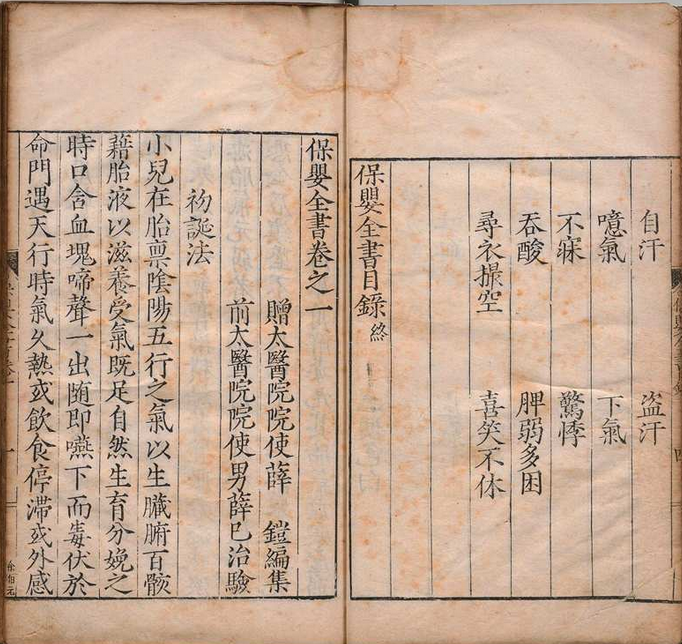 自汗 盗汗
噫氣 下氣
不寐 驚悸
吞酸 脾弱多困
尋衣撮空 喜笑不休
保嬰全書目錄 終
保嬰全書卷之一
贈太醫院院使薛 鎧編集
前太醫院院使男薛己治驗
初誕法
小兒在胎禀陰陽五行之氣以生臟腑百骸
藉胎液以滋養受氣既足自然生育分娩之
時口含血塊啼聲一出随即嚥下而毒伏於
命門遇天行時氣久熱或飲食停滯或外感